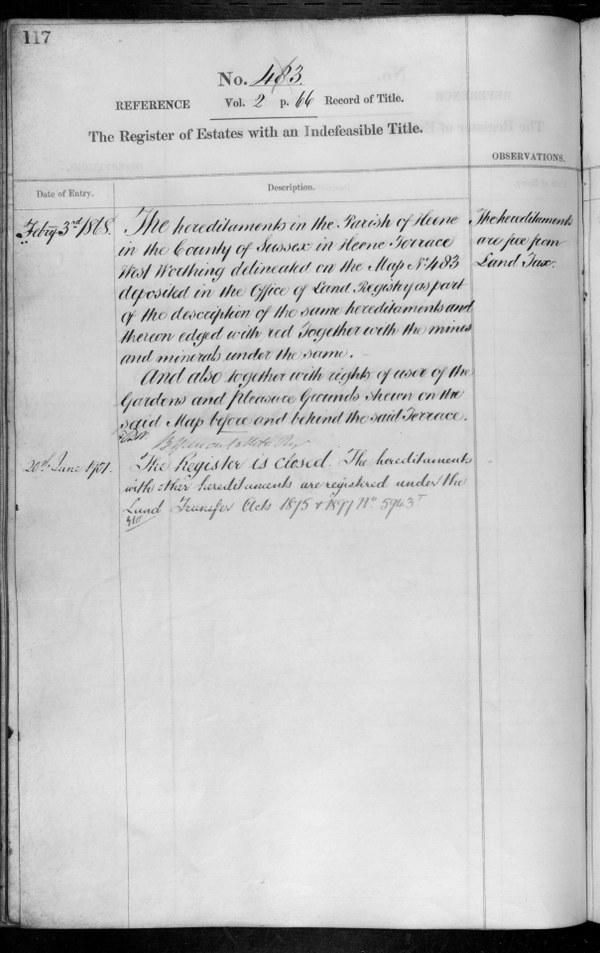 117
No. 483.
REFERENCE Vol. 2 p. 66 Record of Title.
The Register of Estates with an Indefeasible Title.
OBSERVATIONS.
Date of Entry.
Description.
Febry 3rd 1868.
The hereditaments in the Parish of Heene
in the County of Sussex in Heene Terrace
West Worthing delineated on the Map No 483
deposited in the Office of Land Registry as part
of the description of the same hereditaments and
thereon edged with red Together with the mines
and minerals under the same.
And also together with rights of user of the
Gardens and Pleasure Grounds shewn on the
said Map before and behind the said Terrace.
The hereditaments
are free from
Land Tax.
20th June 1901.
The Register is closed. The hereditaments
with other hereditaments are registered under the
Land Transfer Acts 1875 & 1897 No 5943